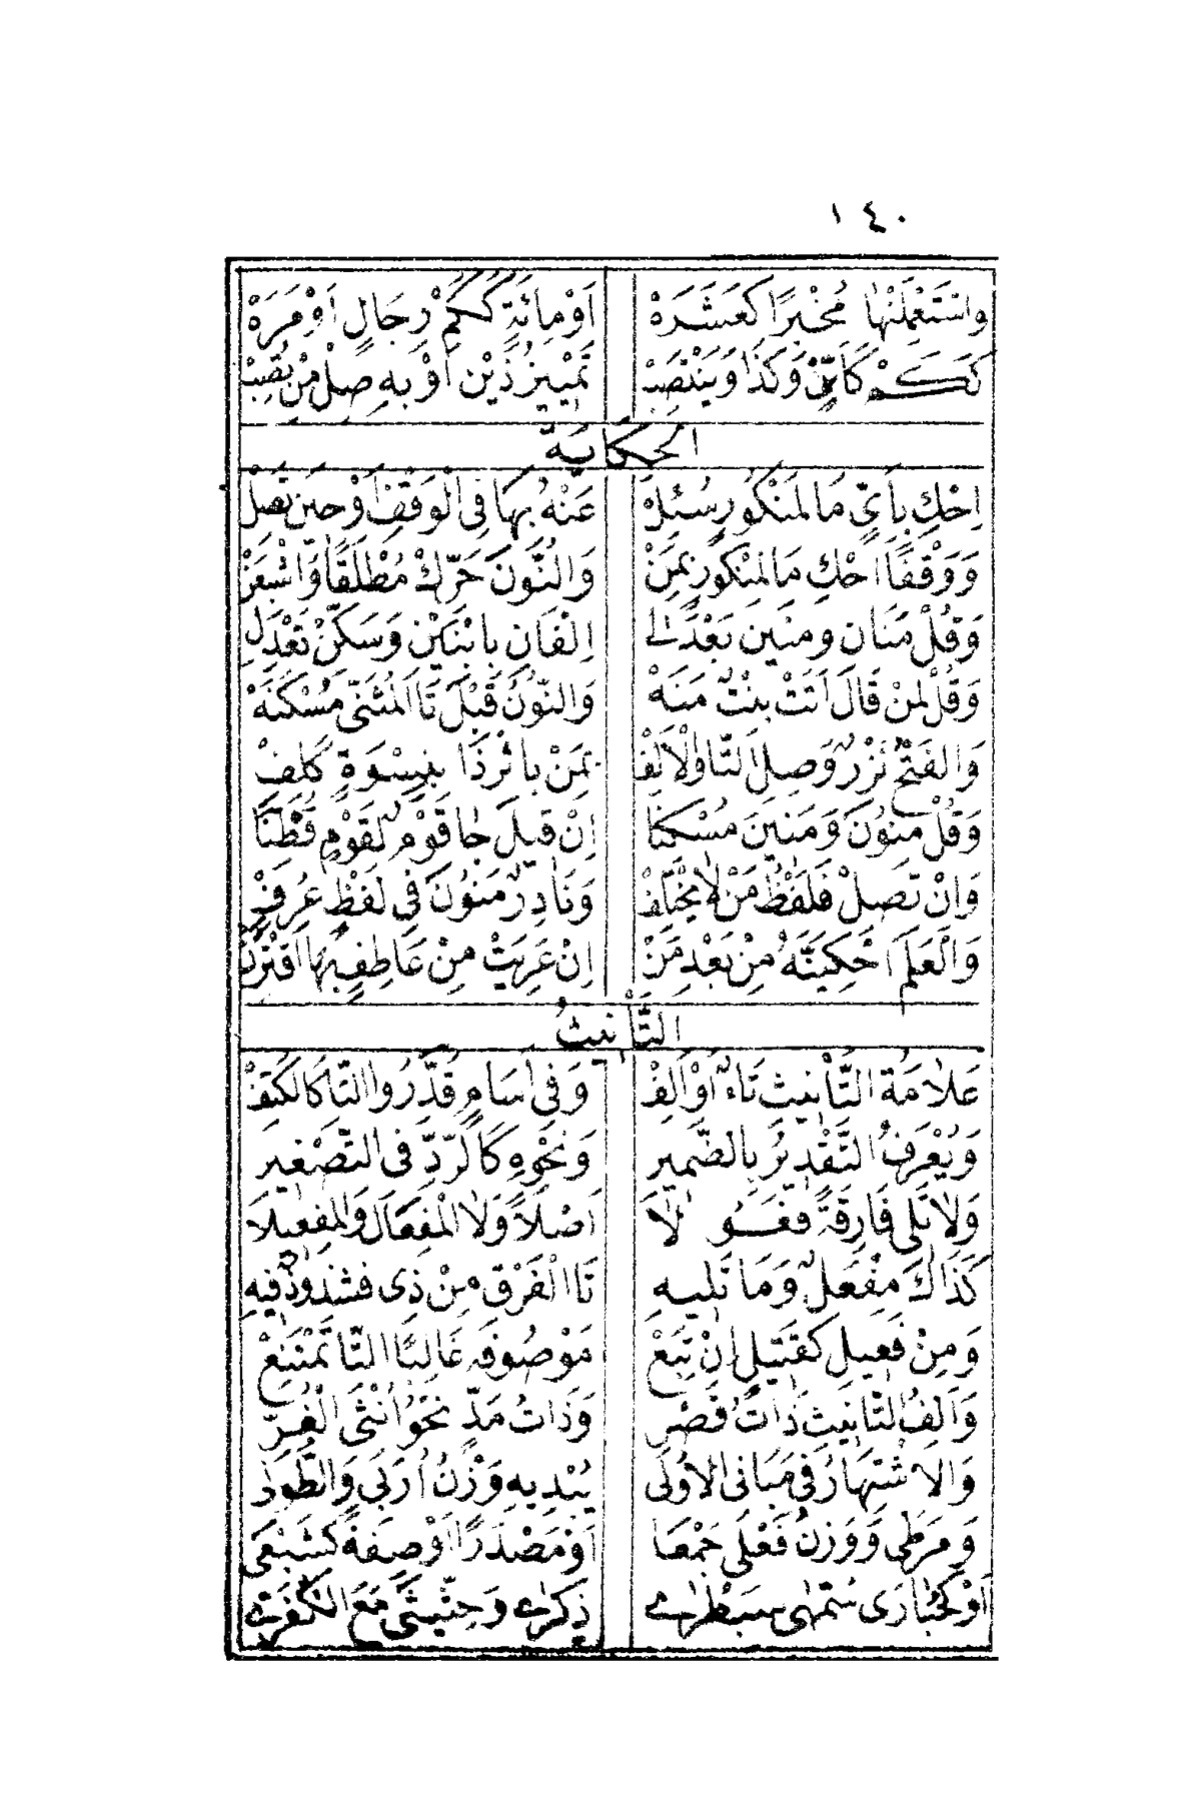 ١٤٠
وَاسْتَعْمِلَنْهَا مُخْبِرًا كَعَشَرَهْ اَوْ مِائَةٍ كَكَمْ رِجَالٍ اَوْ مَرَهْ
كَكَمْ كَاَيِّنْ وَكَذَا وَيَنْتَصِبْ تَمْيِيزُ ذَيْنِ اَوْ بِهِ صِلْ مِنْ تُصِبْ
الحكَايَةُ
اِحْكِ بِاَيٍّ مَا لِمَنْكُورٍ سُئِلْ عَنْهُ بِهَا فِى الْوَقْفِ اَوْ حِينَ تَصِلْ
وَوَقْفًا احْكِ مَا لِمَنْكُورٍ بِمَنْ وَالنُّونَ حَرِّكْ مُطْلَقًا وَاَشْبِعَنْ
وَقُلْ مَنَانِ وَمَنَيْنِ بَعْدَ لِى اِلْفَانِ بِابْنَيْنِ وَسَكِّنْ تَعْدِلِ
وَقُلْ لِمَنْ قَالَ اَتَتْ بِنْتٌ مَنَهْ وَالنُّونُ قَبْلَ تَا الْمُثَنَّى مُسْكَنَهْ
وَالفَتْحُ نَزْرٌ وَصِلِ التَّا وَالْاَلِفْ بِمَنْ بِاِثْرِ ذَا بِنِسْوَةٍ كَلِفْ
وَقُلْ مَنُونَ وَمَنِينَ مُسْكِنَا اِنْ قِيلَ جَا قَوْمٌ لِقَوْمٍ فُطَنَا
وَاِنْ تَصِلْ فَلَفْظُ مَنْ لَا يَخْتَلِفْ وَنَادِرٌ مَنُونَ فِى لَفْظٍ عُرِفْ
وَالْعَلَمَ احْكِيَنَّهُ مِنْ بَعْدِ مَنْ اِنْ عَرِيَتْ مِنْ عَاطِفٍ بِهَا اقْتَرَنْ
التَّأْنِيثُ
عَلَامَةُ التَّأْنِيثِ تَاءٌ اَوْ اَلِفْ وَفِى اَسَامٍ قَدَّرُوا التَّا كَالكَتِفْ
وَيُعْرَفُ التَّقْدِيرُ بِالضَّمِيرِ وَنَحْوِهِ كَالرَّدِّ فِى التَّصْغِيرِ
وَلَا تَلِى فَارِقَةً فَعُولَا اَصْلًا وَلَا الْمِفْعَالَ وَالمِفْعِيلَا
كَذَاكَ مِفْعَلٌ وَمَا تَلِيهِ تَا الْفَرْقِ مِنْ ذِى فَشُذُوذٌ فِيهِ
وَمِنْ فَعِيلٍ كَقَتِيلٍ اِنْ تَبِعْ مَوْصُوفَهُ غَالِبًا التَّا تَمْتَنِعْ
وَاَلِفُ التَّأْنِيثِ ذَاتُ قَصْرِ وَذَاتُ مَدٍّ نَحْوُ اُنْثَى الْغُرِّ
وَالِاشْتِهَارُ فِى مَبَانِى الاُولَى يُبْدِيهِ وَزْنُ اُرَبَى وَالطُّولَى
وَمَرَطَى وَوَزْنُ فَعْلَى جَمْعَا اَوْ مَصْدَرًا اَوْ صِفَةً كَشَبْعَى
اَوْ كَحُبَارَى سُمَّهَى سِبَطْرَى ذِكْرَى وَحِثِّيثَى مَعَ الكُفُرَّى